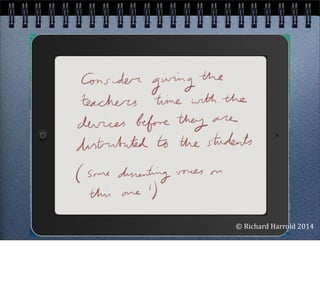 Consider giving the
teachers time with the
devices before they are
distributed to the students
(some dissenting voices on
this one!)
© Richard Harrold 2014